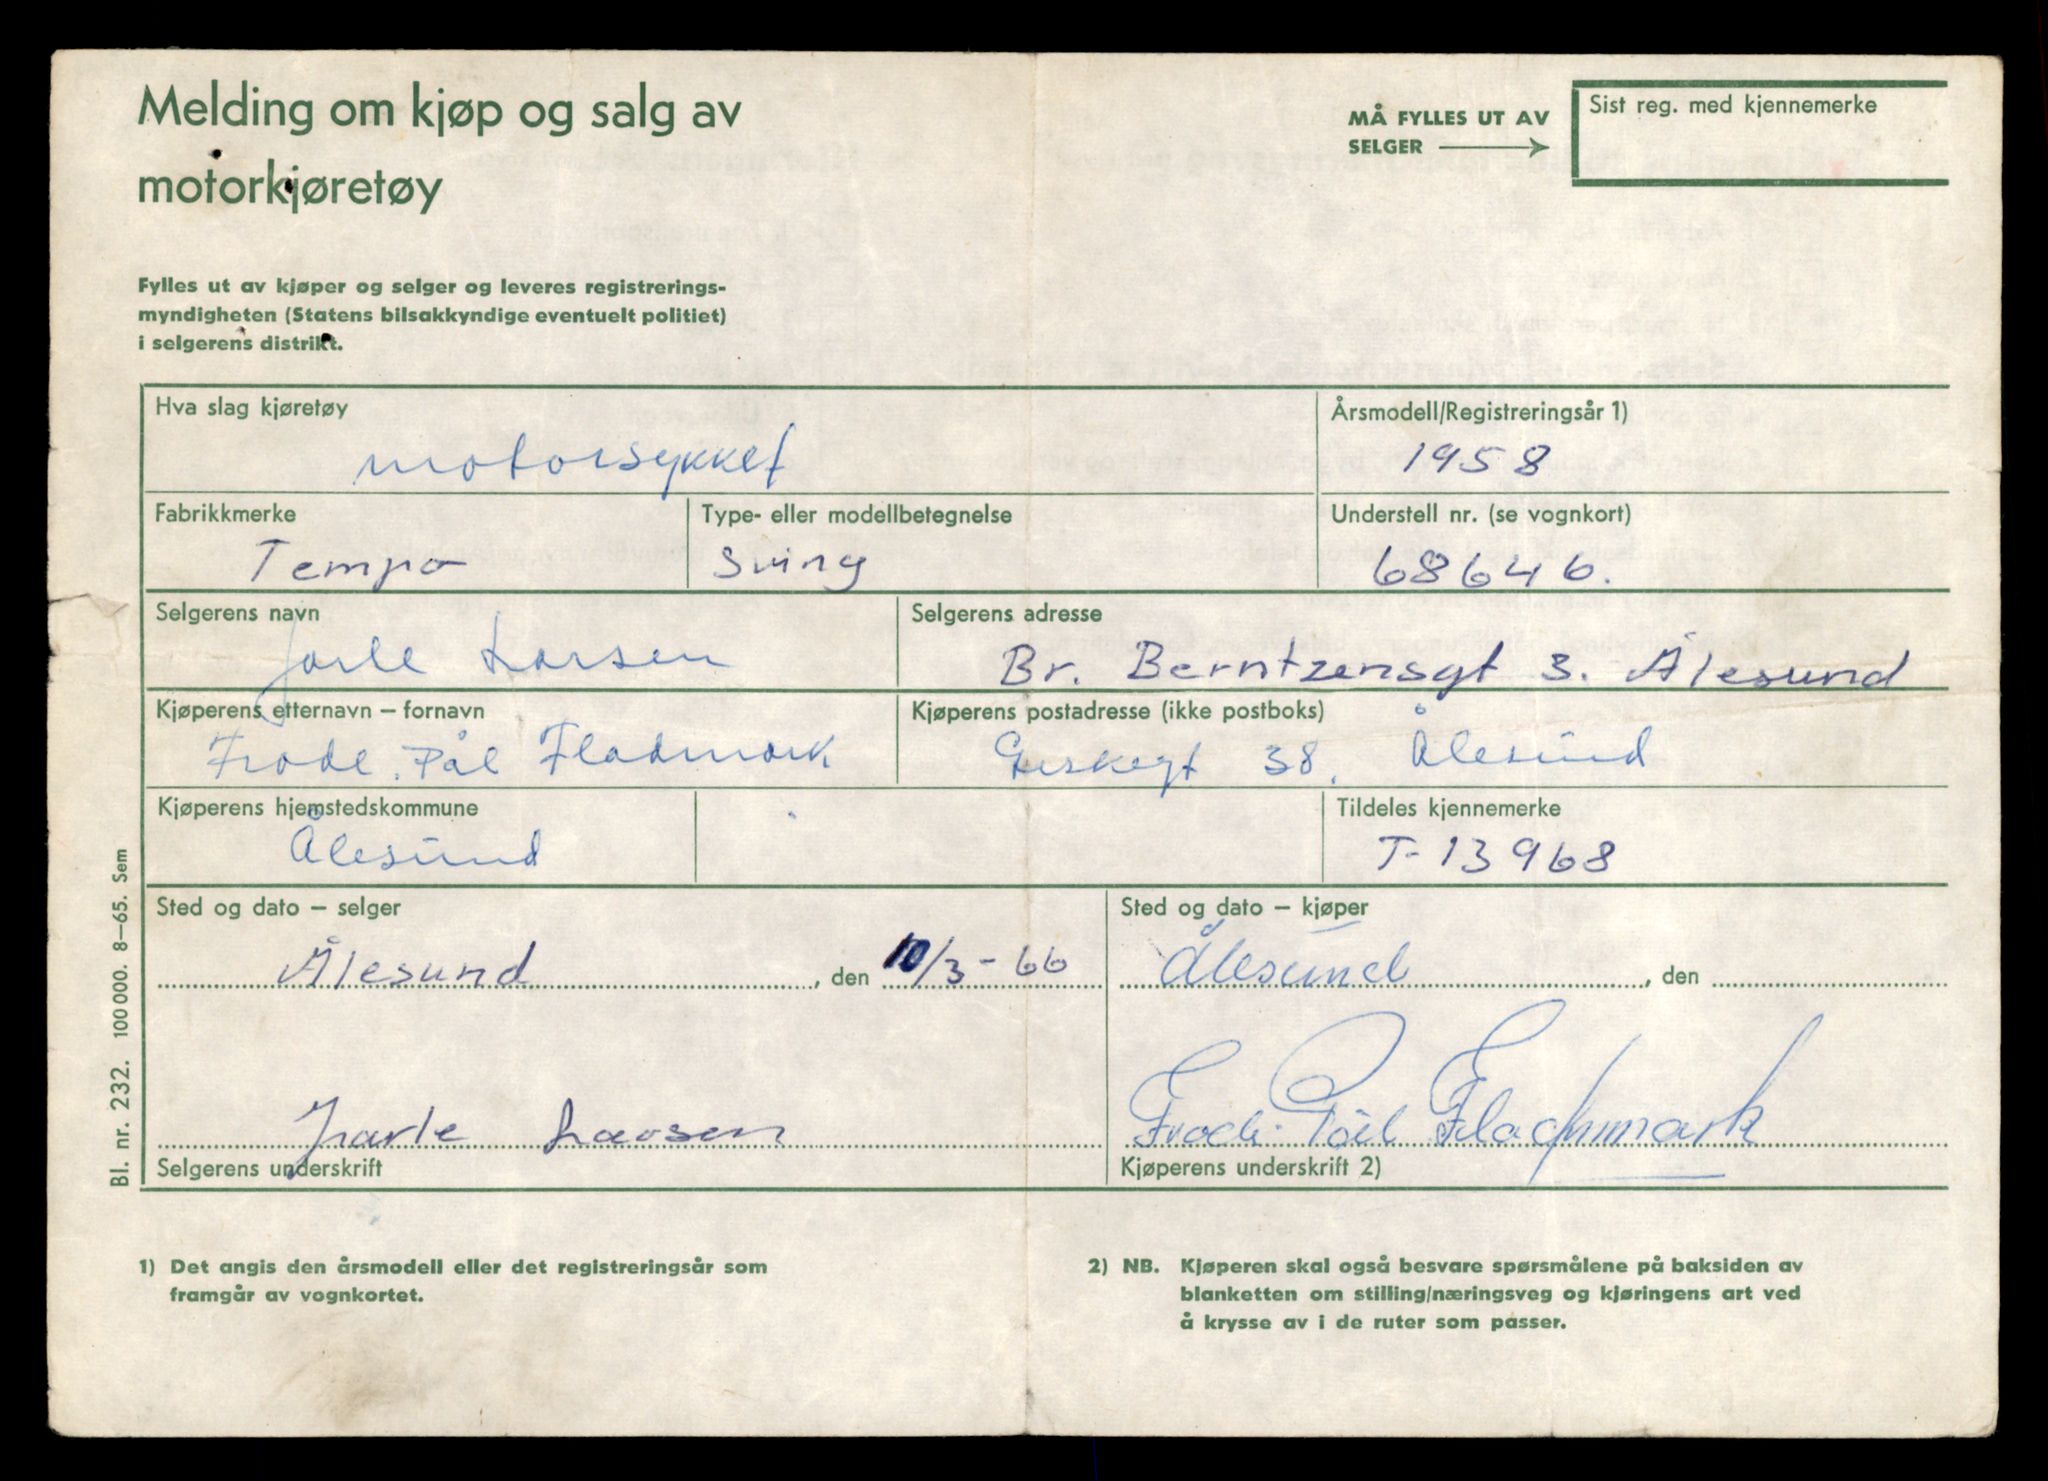 Melding om kjøp og salg av
motorkjøretøy
MÅ FYLLES UT AV
SELGER
Sist reg. med kjennemerke
Fylles ut av kjøper og selger og leveres registrerings-
myndigheten (Statens bilsakkyndige eventuelt politiet)
i selgerens distrikt.
Hva slag kjøretøy
motorsykkel
Årsmodell/Registreringsår 1)
1958
Fabrikkmerke
Tempo
Type- eller modellbetegnelse
Swing
Understell nr. (se vognkort)
68646.
Selgerens navn
Jarle Larsen
Selgerens adresse
Br. Berntzensgt 3. Ålesund
Kjøperens etternavn – fornavn
Frode. Pål Fladmark
Kjøperens postadresse (ikke postboks)
38, Ålesund
Kjøperens hjemstedskommune
Ålesund
Tildeles kjennemerke
T-13968
Sted og dato – selger
Ålesund, den 10/3-66
Sted og dato – kjøper
Ålesund, den
Jarle Larsen
Selgerens underskrift
Frode Pål Fladmark
Kjøperens underskrift 2)
Bl. nr. 232. 100 000. 8–65. Sem
1) Det angis den årsmodell eller det registreringsår som
framgår av vognkortet.
2) NB. Kjøperen skal også besvare spørsmålene på baksiden av
blanketten om stilling/næringsveg og kjøringens art ved
å krysse av i de ruter som passer.